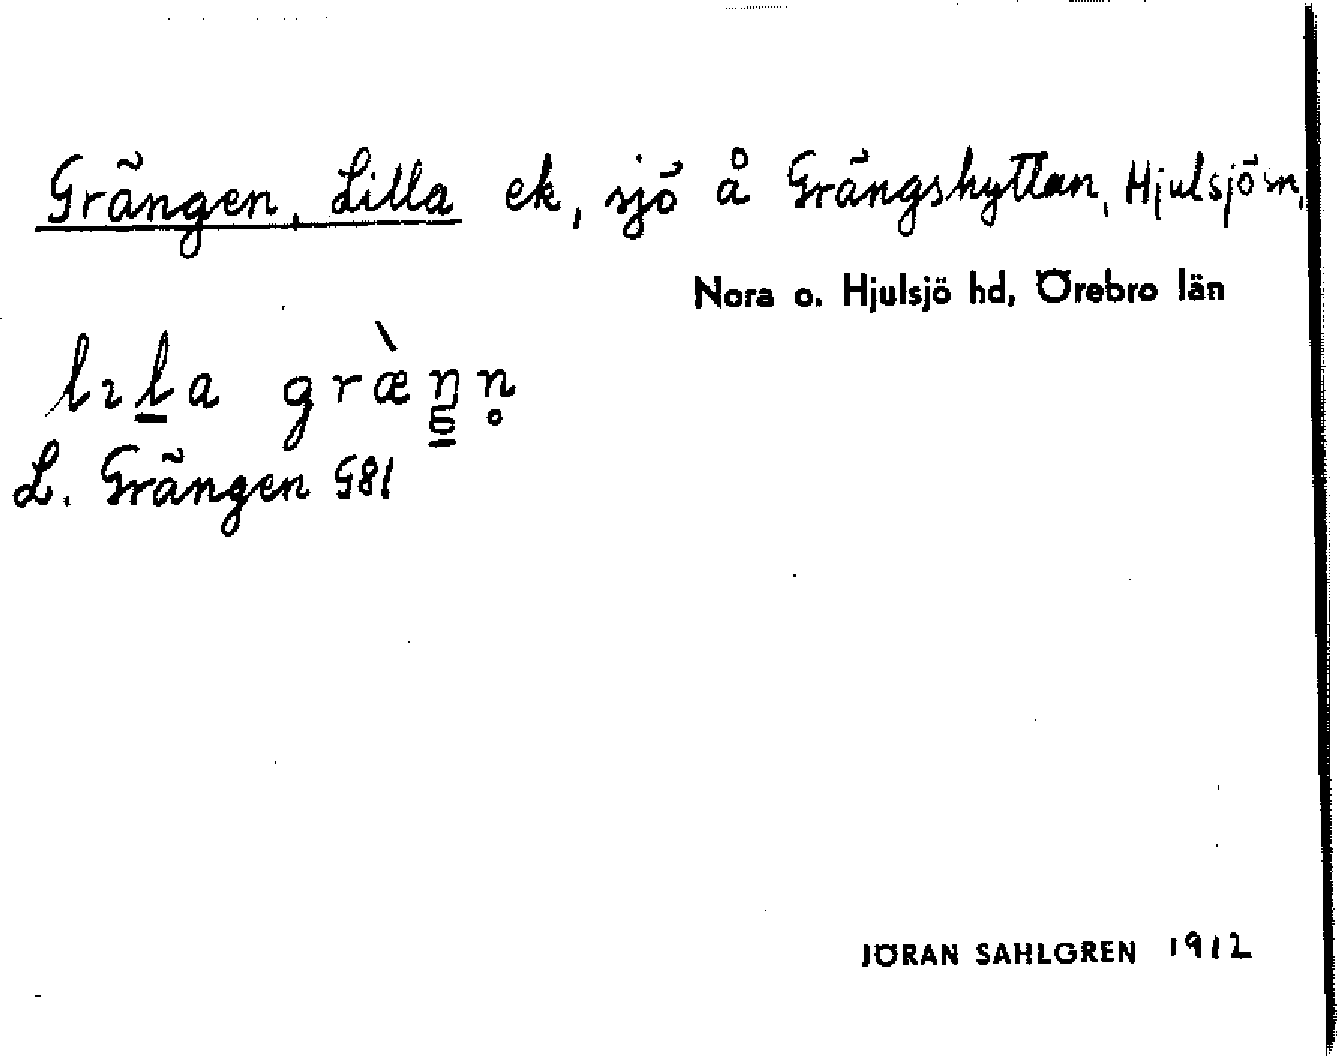 Grängen, Lilla ek, sjö å Grängshyttan, Hjulsjö sn,
Nora o. Hjulsjö hd, Örebro län
lıl̲a græ̀ŋ n̥
L. Grängen G81
JÖRAN SAHLGREN 1912